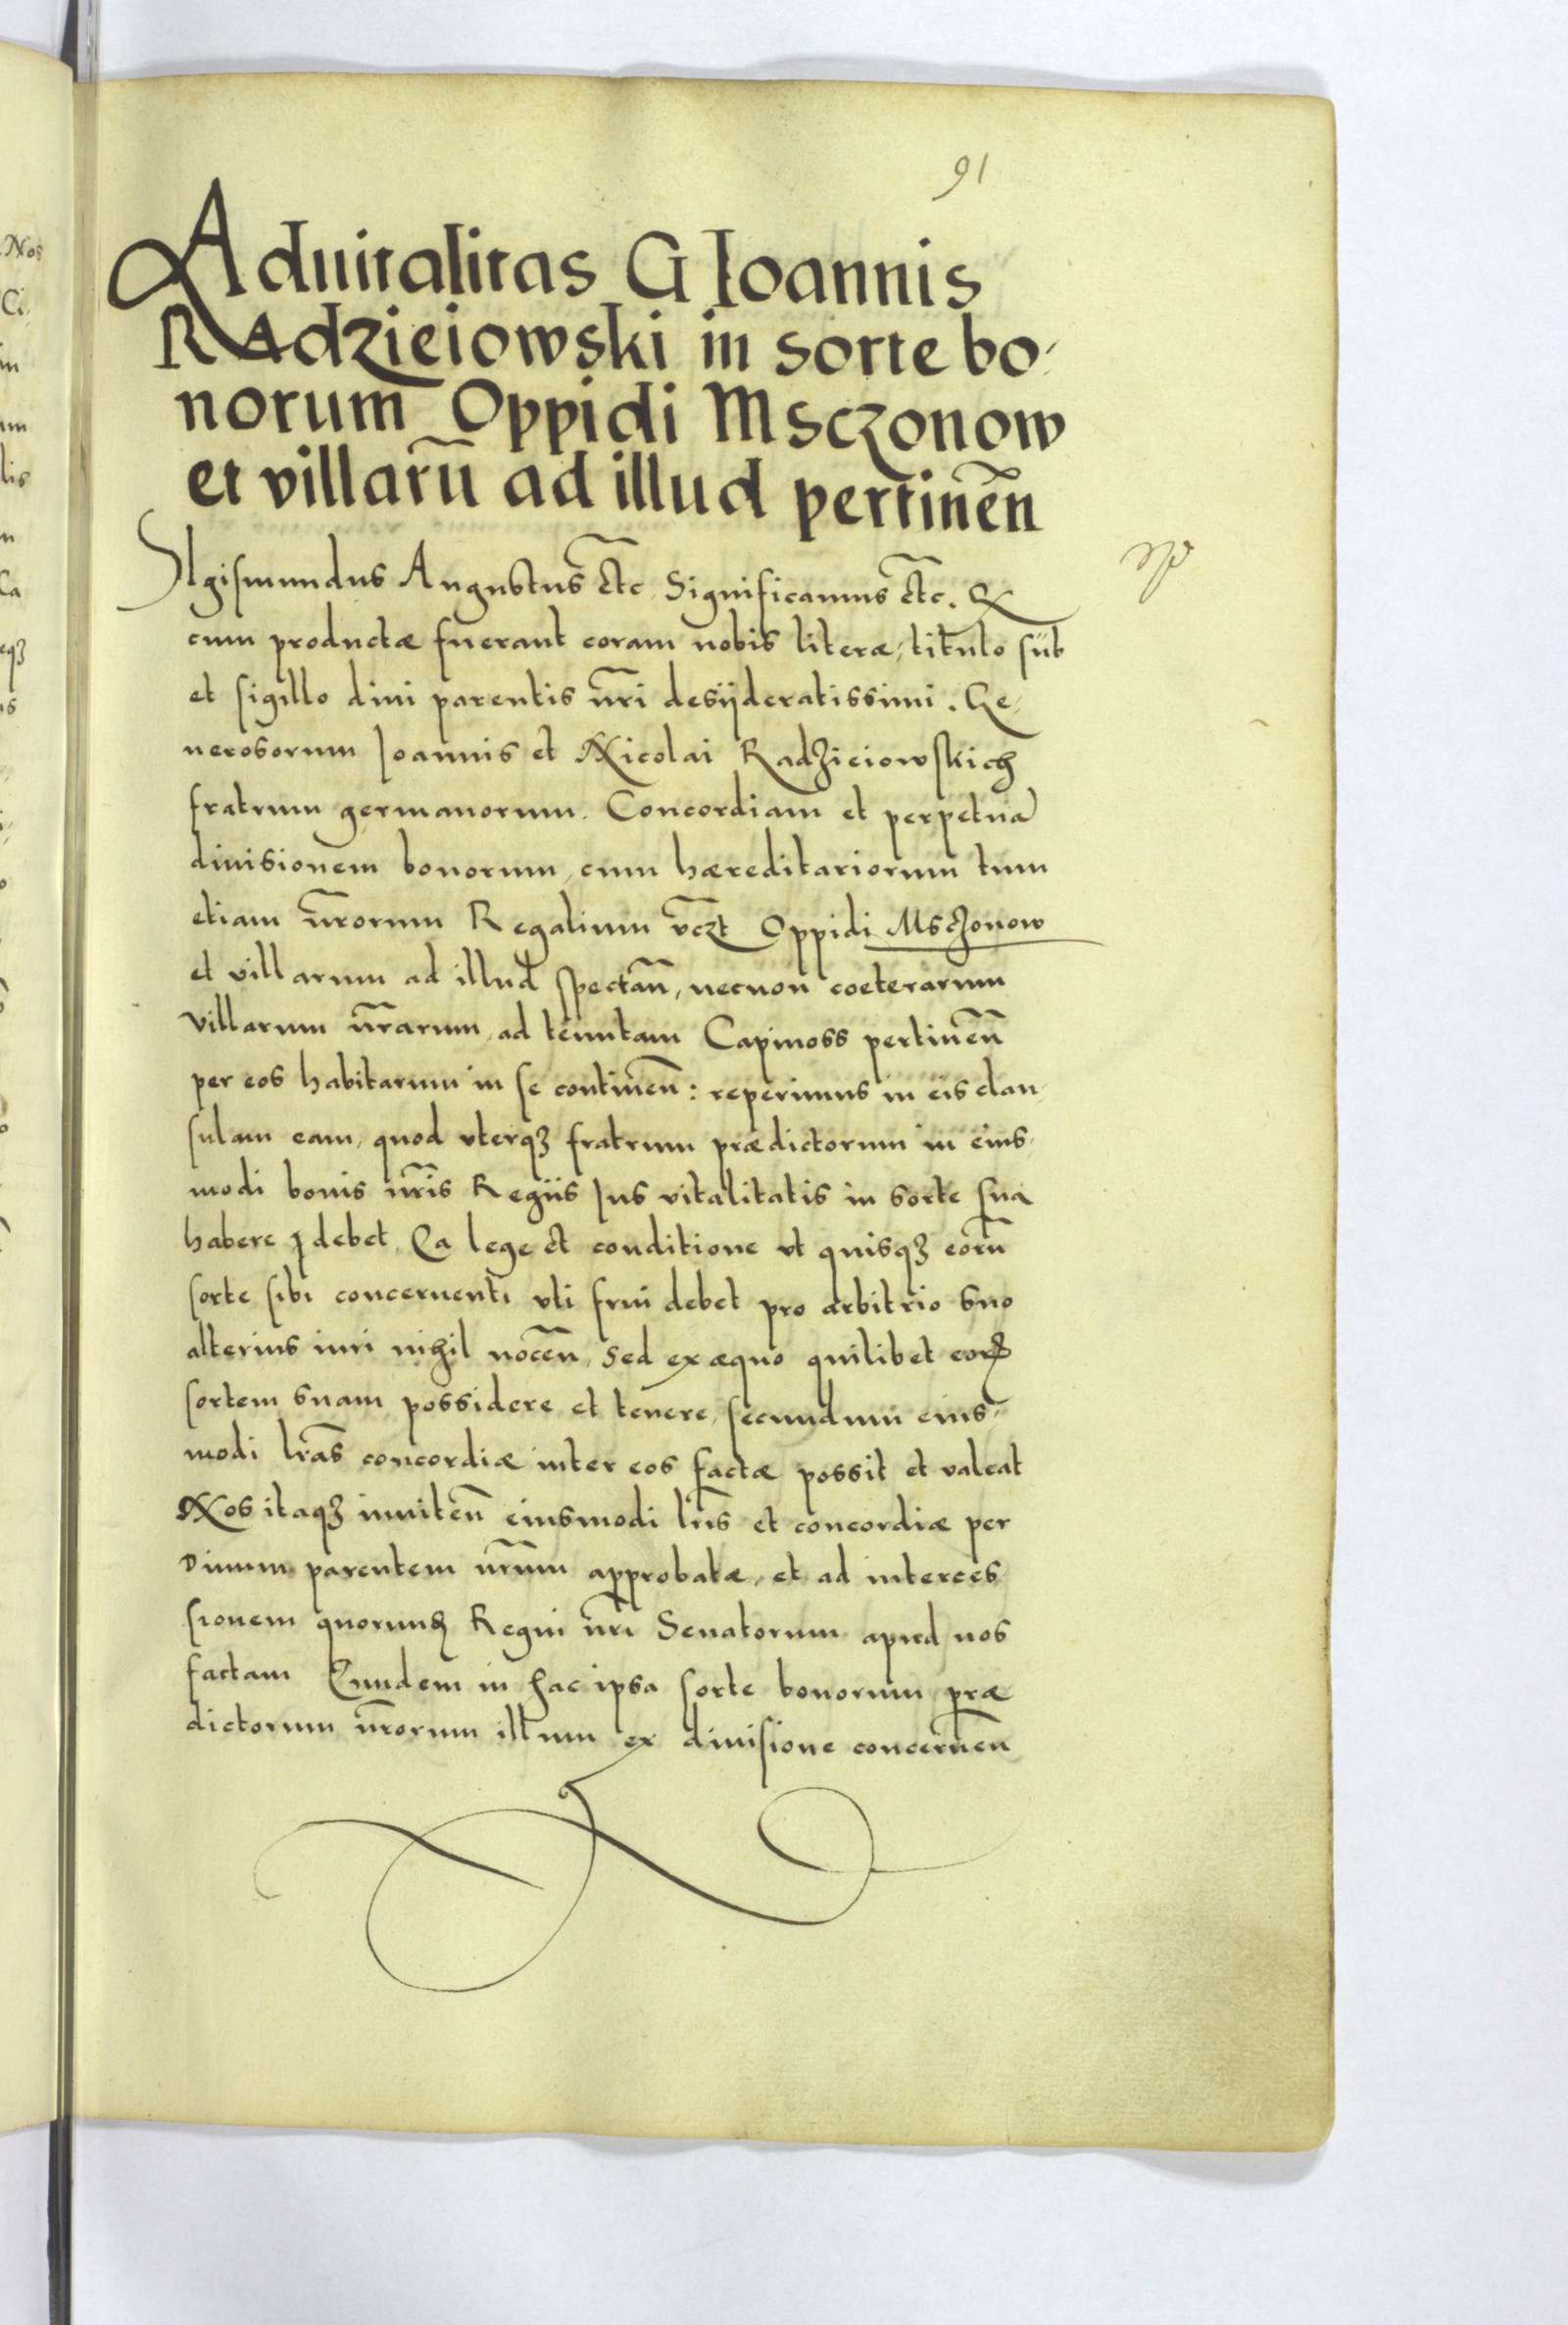 91
Aduitalitas G Ioannis
Radzieiowski in sorte bo-
norum Oppidi Msczonow
et villarū ad illud pertinēn
SIgismundus Augustus etc Significamus etc. Q
cum productæ fuerant coram nobis literæ, titulo sub
et sigillo diui parentis nr̄i desyderatissimi. Ge-
nerosorum Ioannis et Nicolai Radzieiowskich
fratrum germanorum. Concordiam et perpetuā
diuisionem bonorum, cum hæreditariorum tum
etiam nr̄orum Regalium vczt Oppidi Msczonow
et villarum ad illud spectān, necnon coeterarum
villarum nr̄arum, ad tenutam Capinoss pertinēn
per eos habitarum in se continēn: reperimus in eis clau-
sulam eam, quod vterqꝫ fratrum prædictorum in eius-
modi bonis nr̄is Regiis Ius vitalitatis in sorte sua
habere debet. Ea lege et conditione vt quisqꝫ eorū
sorte sibi concernenti vti frui debet pro arbitrio suo
alterius iuri nihil nocēn, Sed ex æquo quilibet eoꝝ
sortem suam possidere et tenere, secundum eius-
modi lrās concordiæ inter eos factæ possit et valeat
Nos itaqꝫ innitēn eiusmodi lr̄is et concordiæ per
Diuum parentem nr̄um approbatæ, et ad interces-
sionem quorund Regni nr̄i Senatorum apud nos
factam Eundem in hac ipsa sorte bonorum præ
dictorum nr̄orum illum ex diuisione concernēn